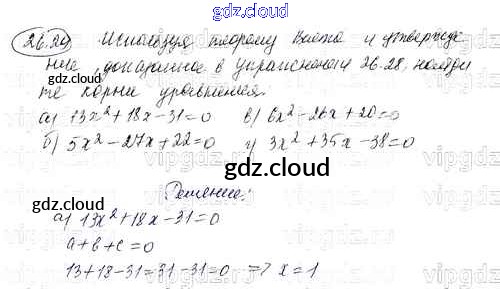 gdz.cloud
26.29 Используя теорему Виета и утвержде
ние, доказанное в упражнении 26.28, найди
те корни уравнения.
а) 13x²+18x-31=0 в) 6x²-26x+20=0
б) 5x²-27x+22=0 г) 3x²+35x-38=0
gdz.cloud
gdz.cloud
Решение:
gdz.cloud
а) 13x²+18x-31=0
a+b+c=0
13+18-31=31-31=0 => x=1